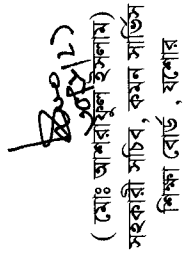 ( মোঃ আশরাফুল ইসলাম)
সহকারী সচিব, কমন সার্ভিস
শিক্ষা বোর্ড , যশোর